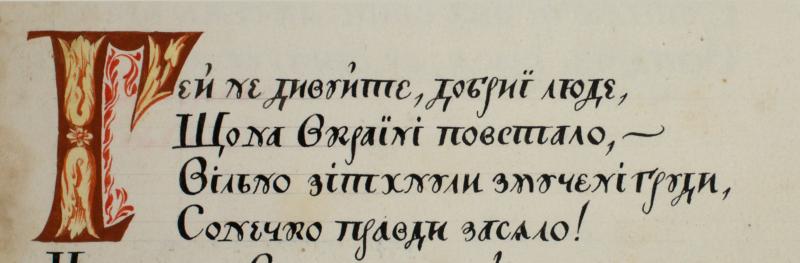 Гей не дивуйте, добриї люде,
Що на Вкраїні повстало,~
Вільно зітхнули змучені груди,
Сонечко правди засяло!